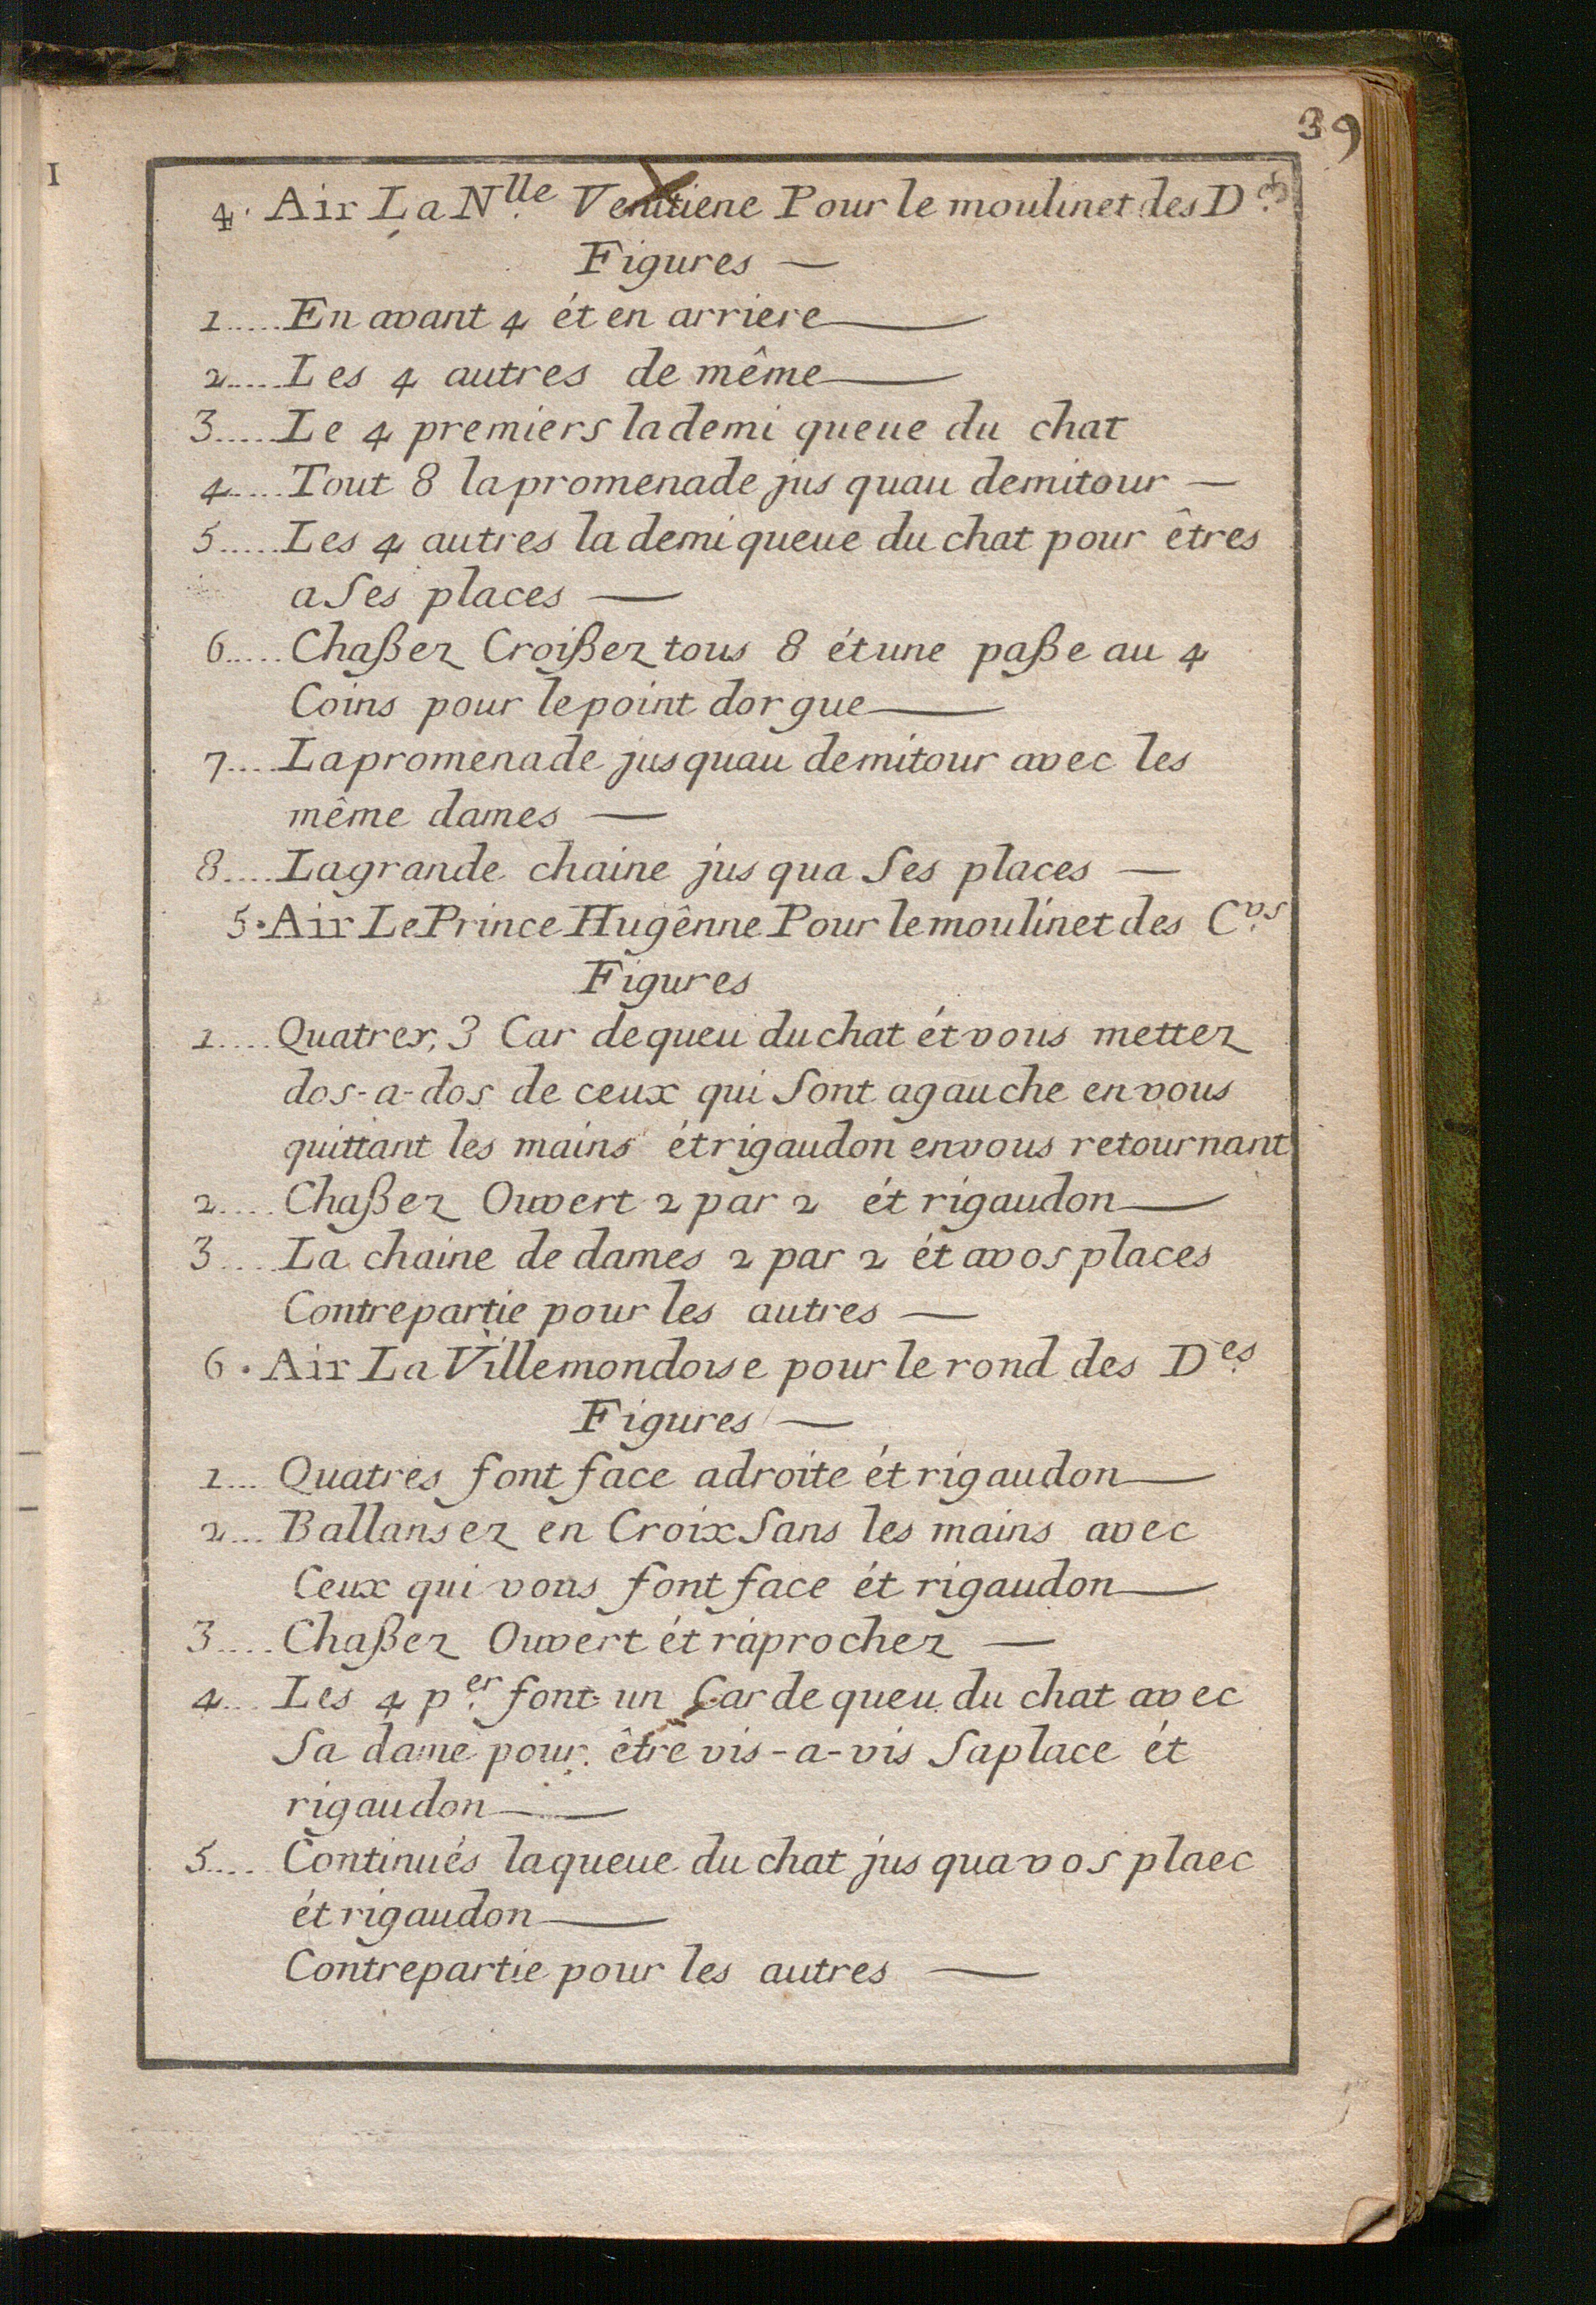 39
1
4. Air La Nlle. Venitiene Pour le moulinet des D.es
Figures —
1..... En avant 4 ét en arriere —
2..... Les 4 autres de même —
3..... Le 4 premiers la demi queue du chat
4..... Tout 8 la promenade jus quau demitour —
5..... Les 4 autres la demi queue du chat pour êtres
a Ses places —
6..... Chaßez Croißez tous 8 ét une paße au 4
Coins pour le point dorgue —
7.... La promenade jus quau demitour avec les
même dames —
8.... La grande chaine jus qua Ses places —
5. Air Le Prince Hugênne Pour le moulinet des C.vs
Figures
1.... Quatrer, 3 Car de queu du chat ét vous mettez
dos-a-dos de ceux qui Sont agauche en vous
quittant les mains ét rigaudon en vous retournant
2.... Chaßez Ouvert 2 par 2 ét rigaudon —
3.... La chaine de dames 2 par 2 ét a vos places
Contrepartie pour les autres —
6. Air La Villemondoise pour le rond des D.es
Figures —
1... Quatres font face adroite ét rigaudon —
2... Ballansez en Croix Sans les mains avec
Ceux qui vous font face ét rigaudon —
3.... Chaßez Ouvert ét raprochez —
4... Les 4 p.er font un Car de queu du chat avec
Sa dame pour être vis-a-vis Saplace ét
rigaudon —
5.... Continués la queue du chat jus qua vos plaec
ét rigaudon —
Contrepartie pour les autres —